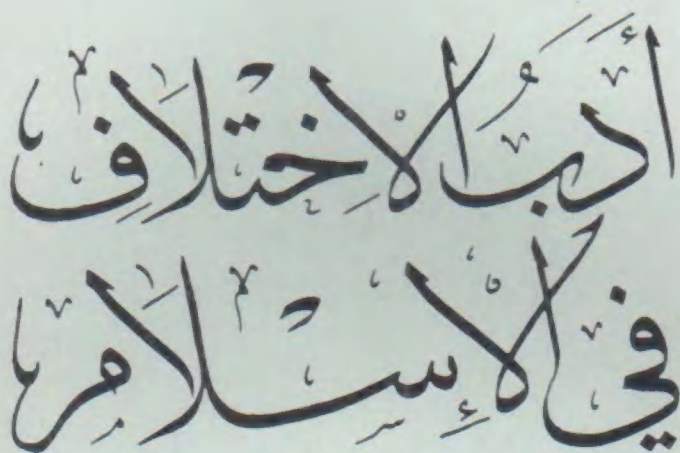 أَدَبُ الاِخْتِلَافِ
فِي الْإِسْلَامِ